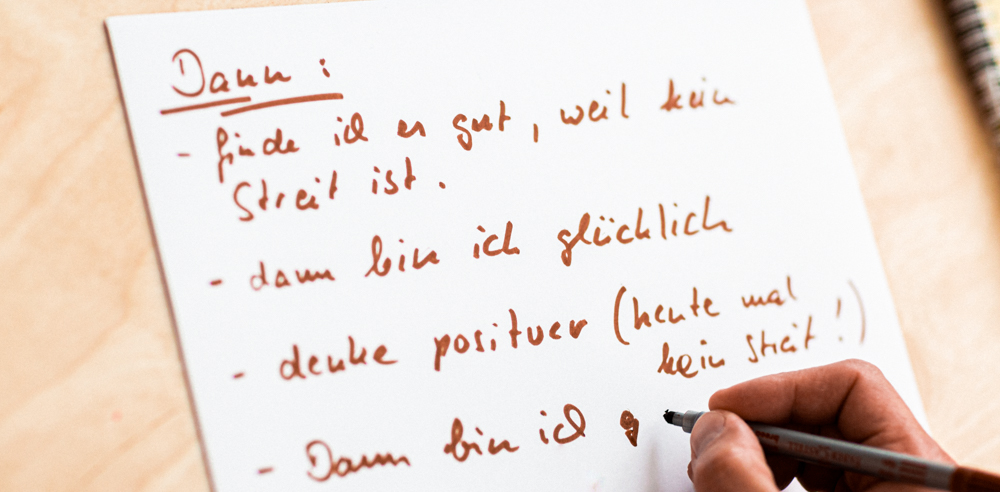 Dann :
- finde ich es gut, weil kein
Streit ist.
- dann bin ich glücklich
- denke positiver (heute mal
kein Streit!)
- Dann bin ich g